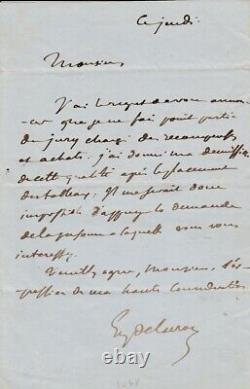 ce jeudi.
Monsieur,
J'ai le regret de vous annon-
-cer que je ne fais point partie
du jury chargé des récompenses
et achats: j'ai donné ma démission
de cette qualité après le placement
des tableaux. Il me serait donc
impossible d'appuyer la demande
de la personne à laquelle vous vous
intéressez.
Veuillez agréer, Monsieur, l'ex-
pression de ma haute considération
Eug Delacroix